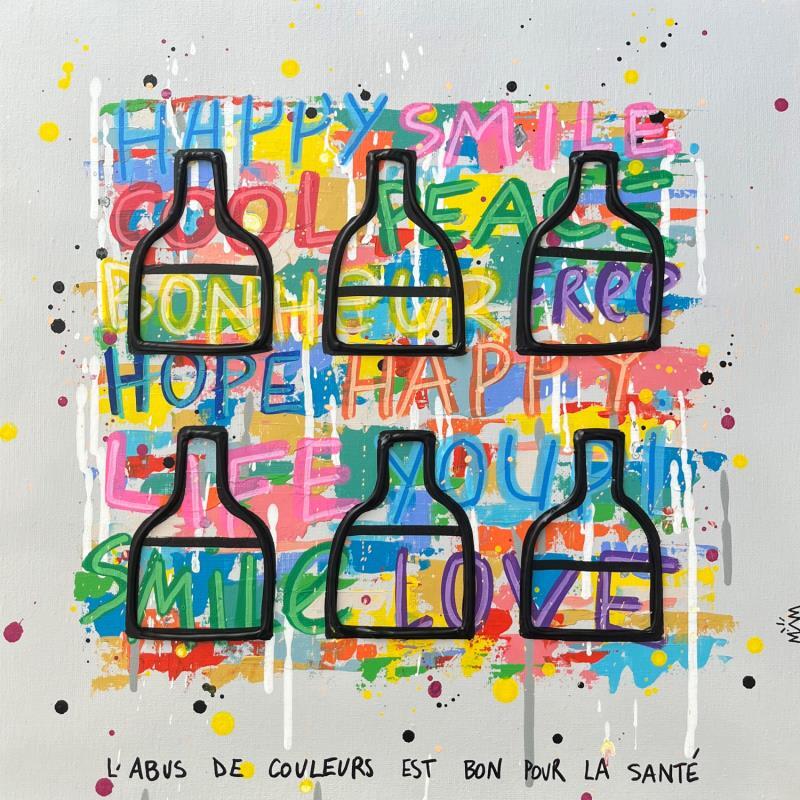 HAPPY SMILE
COOL PEACE
BONHEUR FRee
HOPE HAPPY
LIFE YOUPI
SMILe LOVE
L'ABUS DE COULEURS EST BON POUR LA SANTÉ